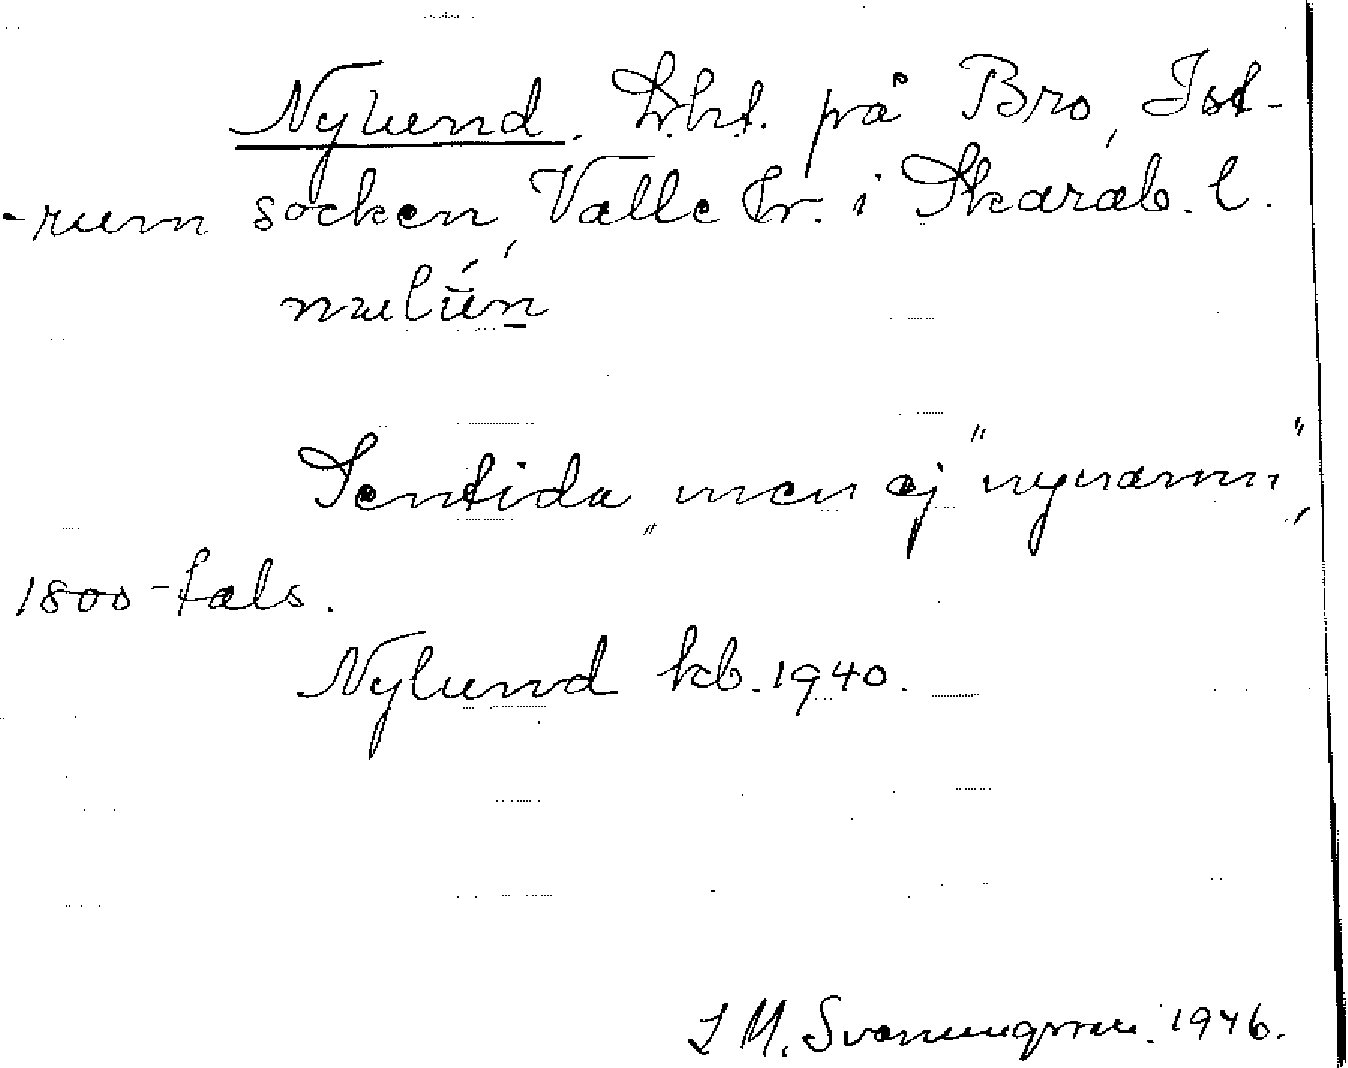 Nylund. Lht. på Bro, Ist-
-rum socken, Valle hr. i Skarab. l.
Sentida, men ej "nynamn",
1800-tals.
Nylund kb. 1940.
1946.